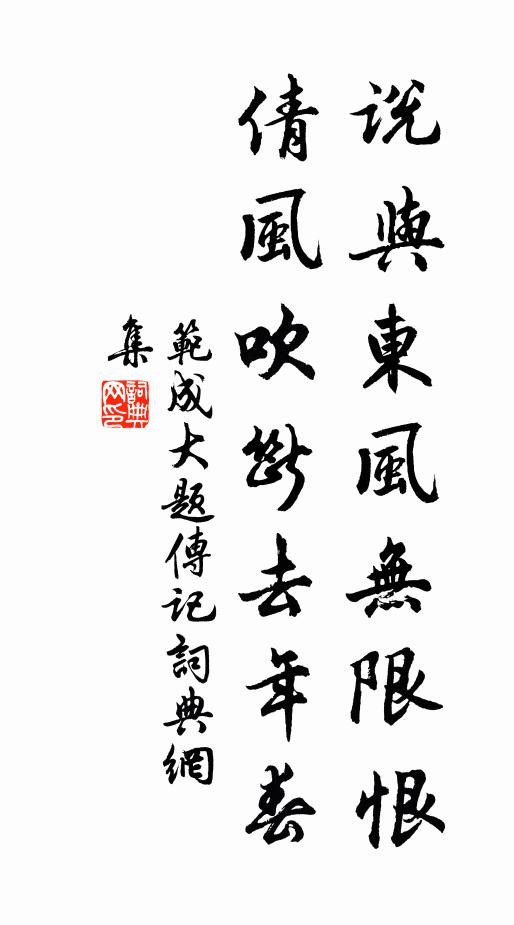 說與東風無限恨
倩風吹斷去年春
範成大題傳記詞典網
集
詞典網印